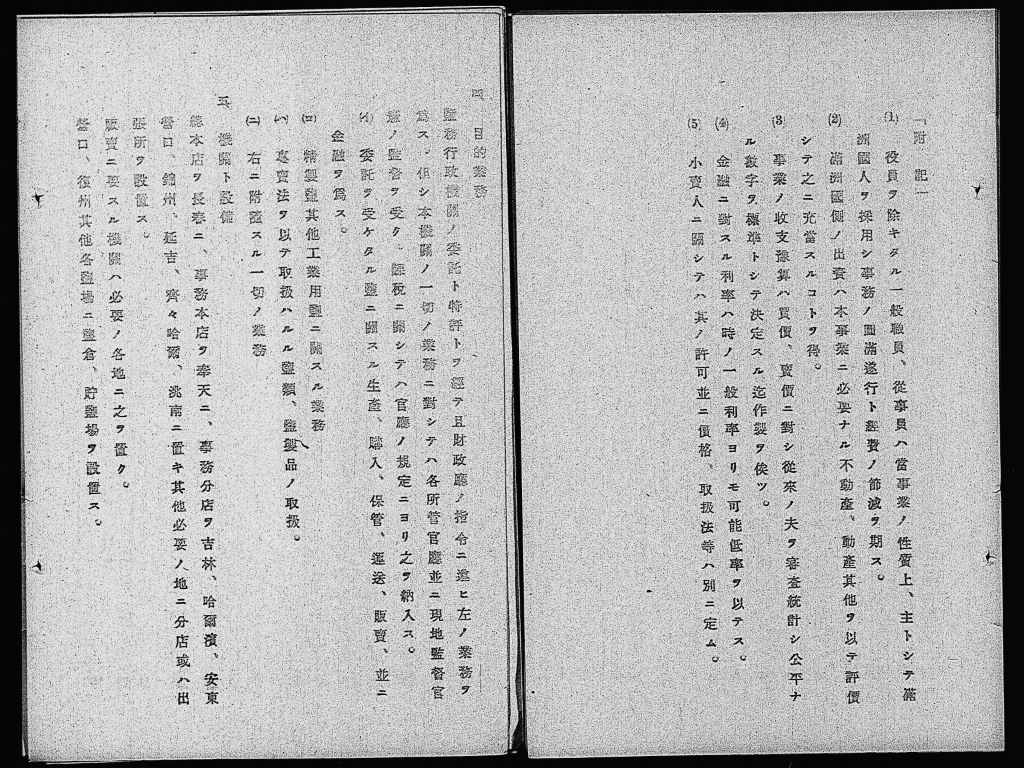 「附記」
(1) 役員ヲ除キタル一般職員、從事員ハ當事業ノ性質上、主トシテ滿
洲國人ヲ採用シ事務ノ圓滿遂行ト經費ノ節減ヲ期ス。
(2) 滿洲國側ノ出資ハ本事業ニ必要ナル不動產、動產其他ヲ以テ評價
シテ之ニ充當スルコトヲ得。
(3) 事業ノ收支豫算ハ買價、賣價ニ對シ從來ノ夫ヲ審查統計シ公平ナ
ル數字ヲ標準トシテ決定スル迄作製ヲ俟ツ。
(4) 金融ニ對スル利率ハ時ノ一般利率ヨリモ可能低率ヲ以テス。
(5) 小賣人ニ關シテハ其ノ許可並ニ價格、取扱法等ハ別ニ定ム。
四、目的業務
鹽務行政機關ノ委託ト特許トヲ經テ且財政廳ノ指令ニ遵ヒ左ノ業務ヲ
爲ス。但シ本機關ノ一切ノ業務ニ對シテハ各所管官廳並ニ現地監督官
憲ノ監督ヲ受ク。課稅ニ關シテハ官廳ノ規定ニヨリ之ヲ納入ス。
(イ) 委託ヲ受ケタル鹽ニ關スル生產、購入、保管、運送、販賣、並ニ
金融ヲ爲ス。
(ロ) 精製鹽其他工業用鹽ニ關スル業務
(ハ) 專賣法ヲ以テ取扱ハルル鹽類、鹽製品ノ取扱。
(ニ) 右ニ附隨スル一切ノ業務
五、機關ト設備
總本店ヲ長春ニ、事務本店ヲ奉天ニ、事務分店ヲ吉林、哈爾濱、安東
營口、錦州、延吉、齊々哈爾、洮南ニ置キ其他必要ノ地ニ分店或ハ出
張所ヲ設置ス。
販賣ニ要スル機關ハ必要ノ各地ニ之ヲ置ク。
營口、復州其他各鹽場ニ鹽倉、貯鹽場ヲ設置ス。